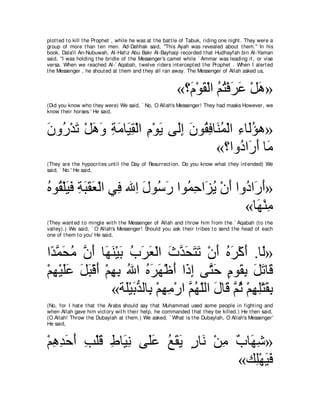 plotted to kill the Prophet , while he was at the battle of Tabuk, riding one night. They were a
group of more than ten men. Ad-Dahhak said, "This Ayah was revealed about them.'' In his
book, Dala'il An-Nubuwah, Al-Hafiz Abu Bakr Al-Bayhaqi recorded that Hudhayfah bin Al-Yaman
said, "I was holding the bridle of the Messenger's camel while `Ammar was leading it, or vise
versa. When we reached Al-`Aqabah, twelve riders intercepted the Prophet . When I alerted
the Messenger , he shouted at them and they all ran away. The Messenger of Allah asked us,
«هَلْ عَرَفْتُمُ الْقَوْمَ؟»
(Did you know who they were) We said, `No, O Allah's Messenger! They had masks However, we
know their horses.' He said,
«هؤُلَاءِ الْمُنَافِقُونَ إِلَى يَوْمِ الْقِيَامَةِ وَهَلْ تَدْرُونَ
مَا أَرَادُوا؟»
(They are the hypocrites until the Day of Resurrection. Do you know what they intended) We
said, `No.' He said,
«أَرَادُوا أَنْ يَزْحَمُوا رَسُولَ اللهِ فِي الْعَقَبَةِ فَيَلْقُوهُ
مِنْهَا»
(They wanted to mingle with the Messenger of Allah and throw him from the `Aqabah (to the
valley).) We said, `O Allah's Messenger! Should you ask their tribes to send the head of each
one of them to you' He said,
«لَا. أَكْرَهُ أَنْ تَتَحَدَّثَ الْعَرَبُ بَيْنَهَا أَنَّ مُحَمَّدًا
قَاتَلَ بِقَومٍ حَتَّى إِذَا أَظْهَرَهُ اللهُ بِهِمْ أَقْبَلَ عَلَيْهِمْ
بِقَتْلِهِمْ ثُمَّ قَالَ اللَّهُمَّ ارْمِهِمْ بِالدُّبَيْلَة»
(No, for I hate that the Arabs should say that Muhammad used some people in fighting and
when Allah gave him victory with their help, he commanded that they be killed.) He then said,
(O Allah! Throw the Dubaylah at them.) We asked, `What is the Dubaylah, O Allah's Messenger'
He said,
«شِهَابٌ مِنْ نَارٍ يَقَعُ عَلَى نِيَاطِ قَلْبِ أَحَدِهِمْ
فَيَهْلِك»